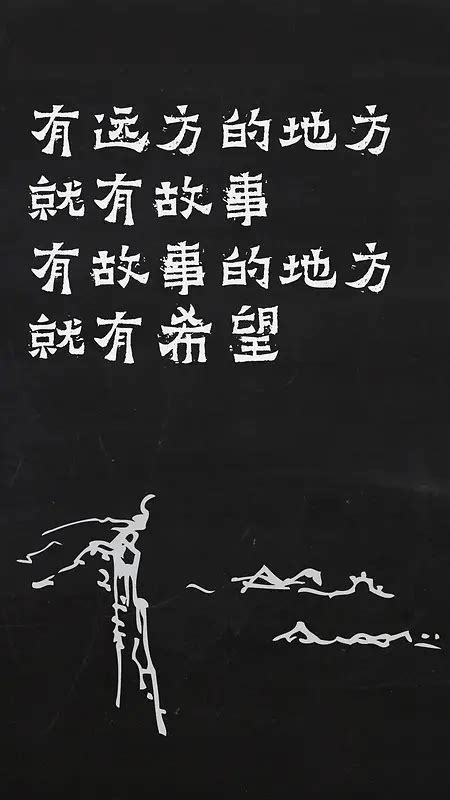 有远方的地方
就有故事
有故事的地方
就有希望